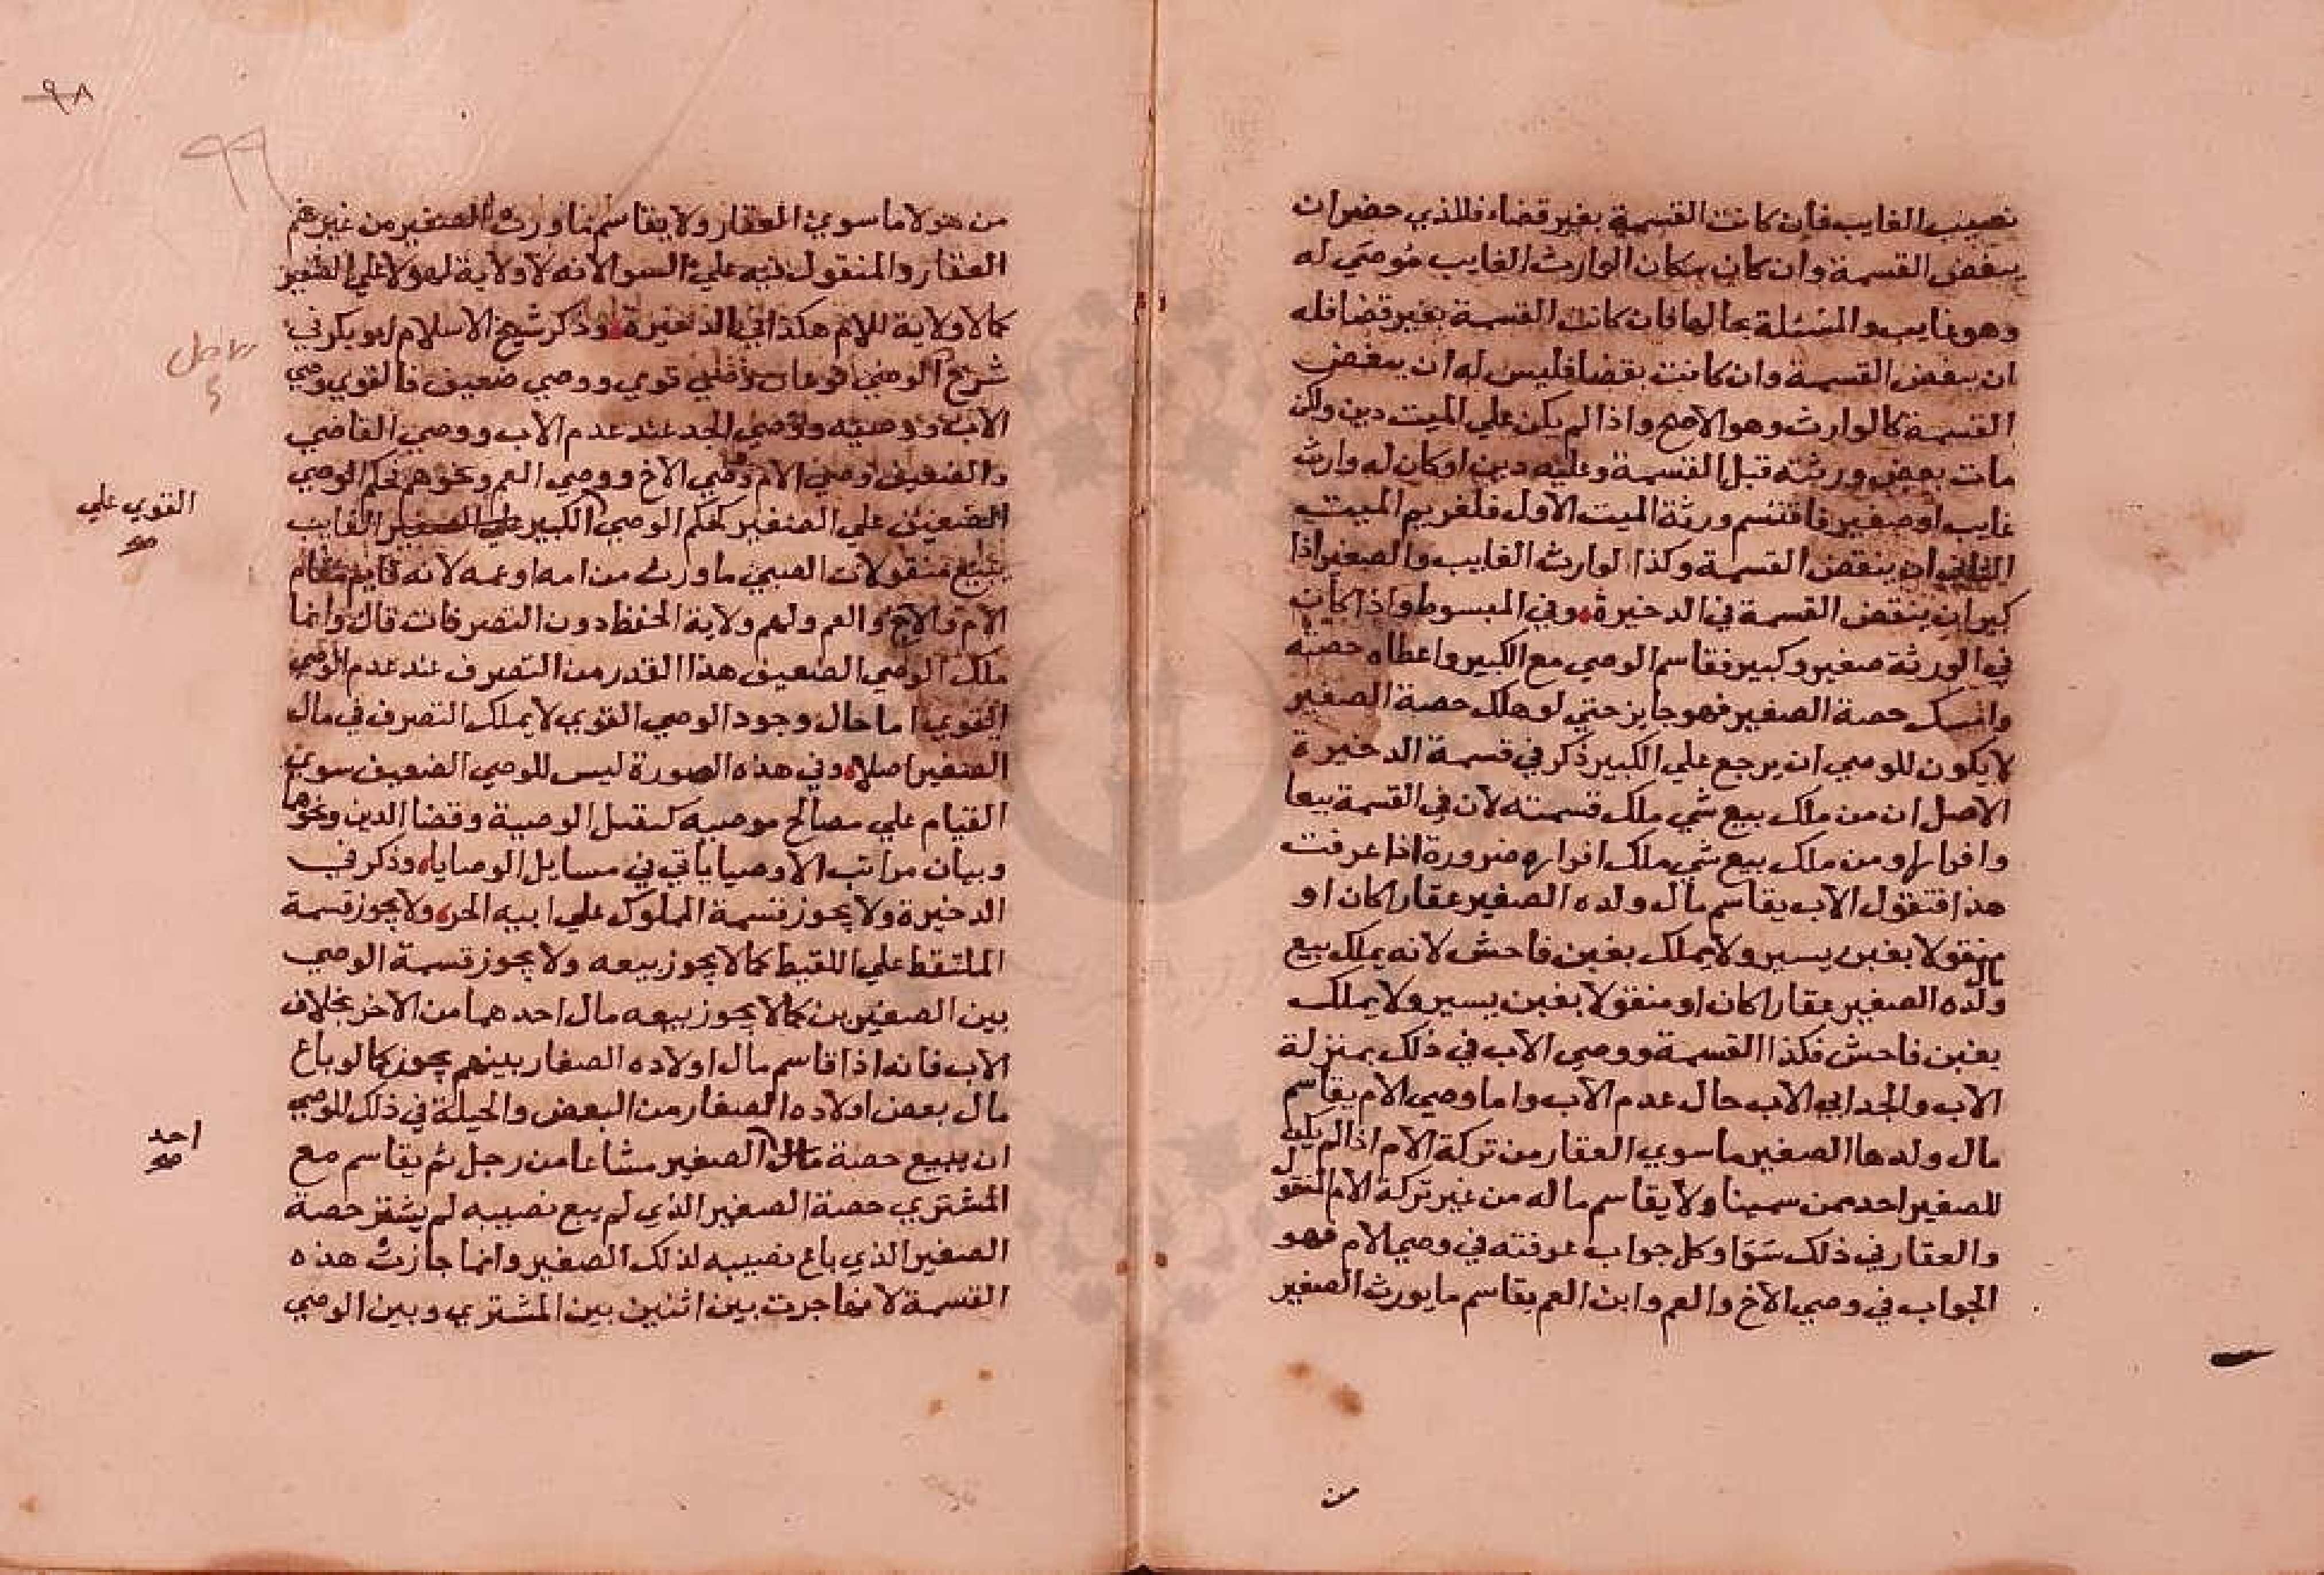 نصيب الغايب فان كانت القسمة بغير قضاء فللذي حضر ان
ينقض القسمة وان كان مكان الوارث الغايب موصي له
وهو غايب والمسئلة بحالها فان كانت القسمة بغير قضا فله
ان ينقض القسمة وان كانت بقضا فليس له ان ينقض
القسمة كالوارث وهو الاصح واذا لم يكن علي الميت دين ولكن
مات بعض ورثته قبل القسمة وعليه دين او كان له وارث
غايب او صغير فاقتسم ورثة الميت الاول فلغريم الميت
الثاني ان ينقض القسمة وكذا الوارث الغايب والصغير اذا
كبر ان ينقض القسمة في الدخيرة وفي المبسوط واذا كان
في الورثة صغير وكبير فقاسم الوصي مع الكبير واعطاه حصته
وامسك حصة الصغير فهو جايز حتي لو هلك حصة الصغير
لا يكون للوصي ان يرجع علي الكبير ذكر في قسمة الدخيرة
الاصل ان من ملك بيع شي ملك قسمته لان في القسمة بيعا
وافرازا ومن ملك بيع شي ملك افرازه ضرورة اذا عرفت
هذا فتقول الاب يقاسم مال ولده الصغير عقارا كان او
منقولا بغبن يسير ولا يملك بغبن فاحش لانه يملك بيع
مال
ولده الصغير عقارا كان او منقولا بغبن يسير ولا يملك
بغبن فاحش فكذا القسمة ووصي الاب في ذلك بمنزلة
الاب والجد ابي الاب حال عدم الاب واما وصي الام يقاسم
مال ولدها الصغير ما سوي العقار من تركة الام اذا لم يكن
للصغير احد ممن سمينا ولا يقاسم ما له من غير تركة الام المنقول
والعقار في ذلك سوا وكل جواب عرفته في وصي الام فهو
الجواب في وصي الاخ والعم وابن العم يقاسم ما يورث الصغير
من
٩٨
٩٩
من هولا ما سوي العقار ولا يقاسم ما ورث الصغير من غيرهم
العقار والمنقول فيه علي السوا لانه لا ولاية لهولا علي الصغير
كما لا ولاية للام هكذا في الدخيرة وذكر شيخ الاسلام ابو بكر في
شرح الوصي نوعان وصي قوي ووصي ضعيف فالقوي وصي
الاب ووصيه ووصي الجد عند عدم الاب ووصي القاضي
والضعيف وصي الام ووصي الاخ ووصي العم ونحوهم فحكم الوصي
الضعيف علي الصغير كحكم الوصي الكبير علي الصغير الغايب
القوي علي
صح
يبيع منقولات الصبي ما ورث من امه او عمه لانه قايم مقام
الام والاخ والعم ولهم ولاية الحفظ دون التصرفات قال وانما
ملك الوصي الضعيف هذا القدر من التصرف عند عدم الوصي
القوي اما حال وجود الوصي القوي لا يملك التصرف في مال
الصغير اصلا وفي هذه الصورة ليس للوصي الضعيف سوي
القيام علي مصالح موصيه كتنفيذ الوصية وقضا الدين ونحوها
وبيان مراتب الاوصيا ياتي في مسايل الوصايا وذكر في
الدخيرة ولا يجوز قسمة المملوك علي ابيه الحر ولا يجوز قسمة
الملتقط علي اللقيط كما لا يجوز بيعه ولا يجوز قسمة الوصي
بين الصغيرين كما لا يجوز بيعه مال احدهما من الاخر بخلاف
الاب فانه اذا قاسم مال اولاده الصغار بينهم يجوز كما لو باع
مال بعض اولاده الصغار من البعض والحيلة في ذلك للوصي
ان يبيع حصة مال الصغير مشاعا من رجل ثم يقاسم مع
احد
صح
المشتري حصة الصغير الذي لم يبع نصيبه ثم يشتر حصة
الصغير الذي باع نصيبه لذلك الصغير وانما جازت هذه
القسمة لانها جرت بين اثنين بين المشتري وبين الوصي